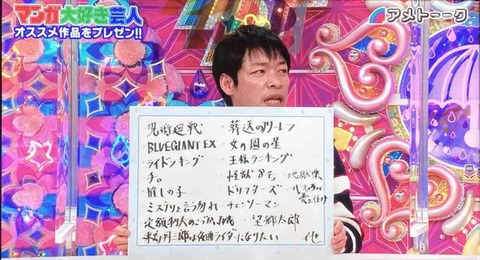 マンガ大好き芸人
オススメ作品をプレゼン!!
アメトーーク
呪術廻戦 ・葬送のフリーレン
BLUEGIANT EX ・女の園の星
ライドンキング ・王様ランキング
チ。 ・怪獣8号 ・地獄楽
推しの子 ・ドリフターズ
ミステリと言う勿れ ・チェンソーマン
定額制夫のこづかい万歳 ・望郷太郎
東島丹三郎は仮面ライダーになりたい 他